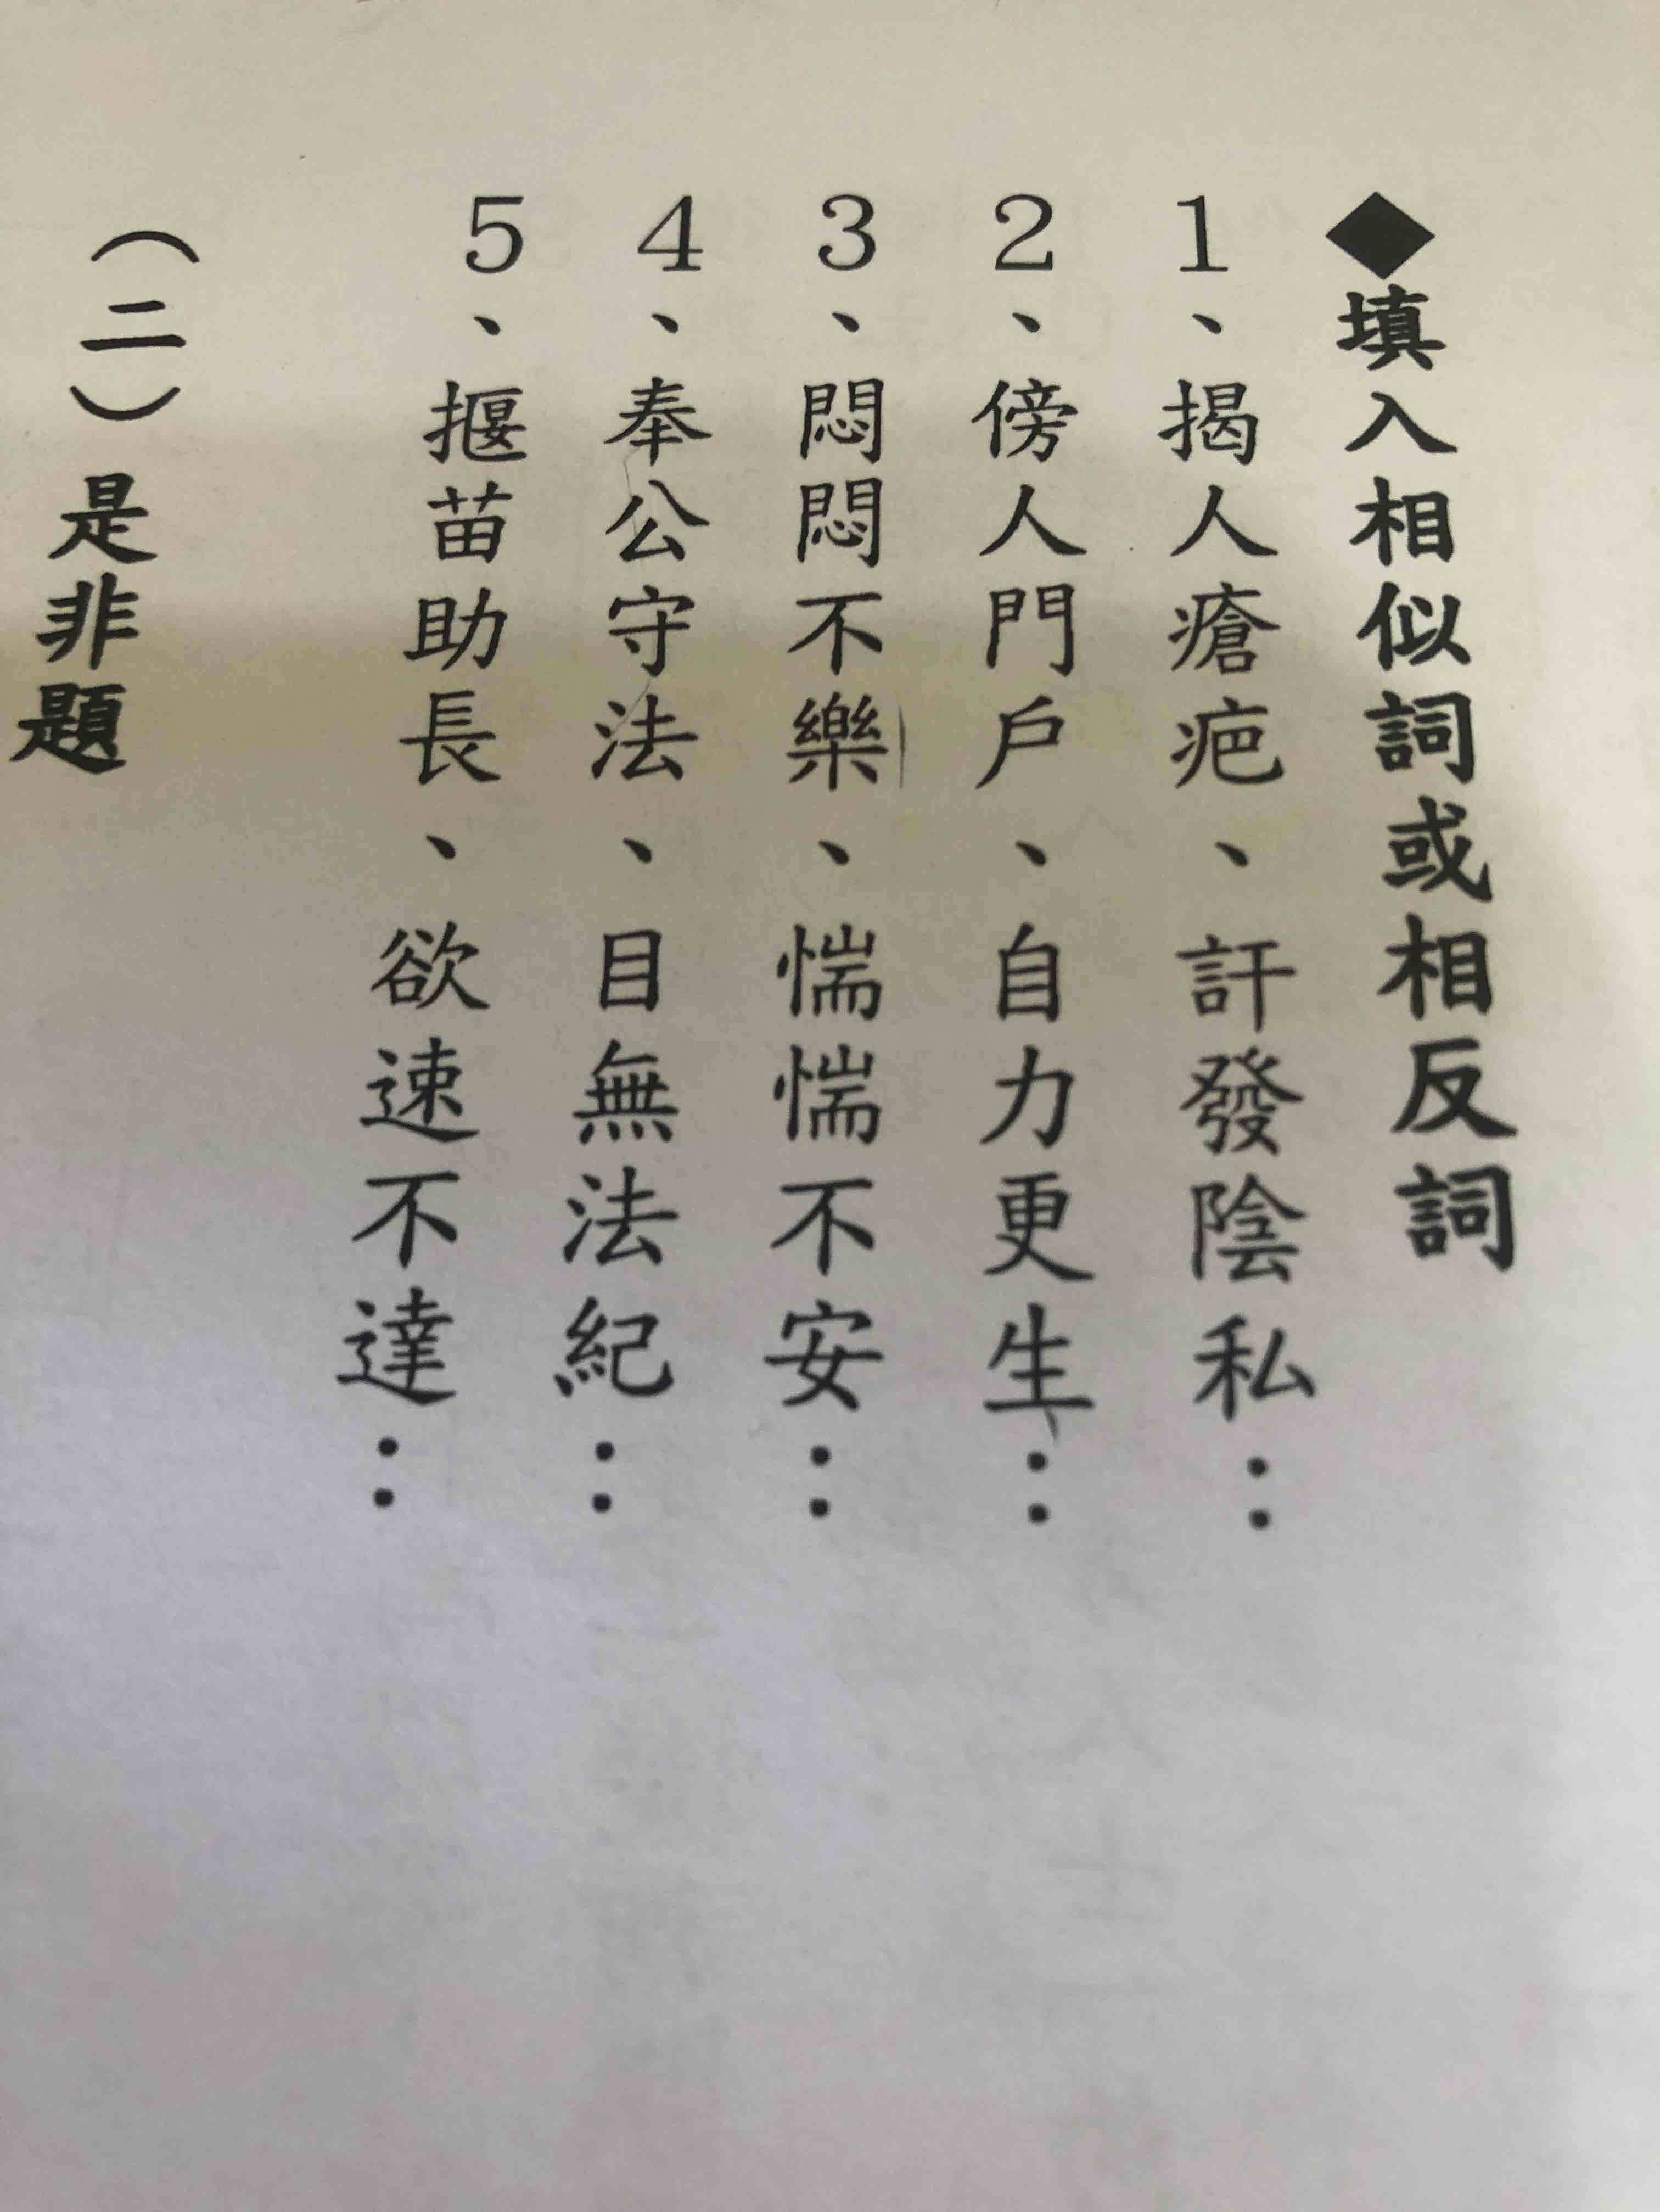 ◆填入相似詞或相反詞
1、揭人瘡疤、訐發陰私：
2、傍人門戶、自力更生：
3、悶悶不樂、惴惴不安：
4、奉公守法、目無法紀：
5、揠苗助長、欲速不達：
（二）是非題